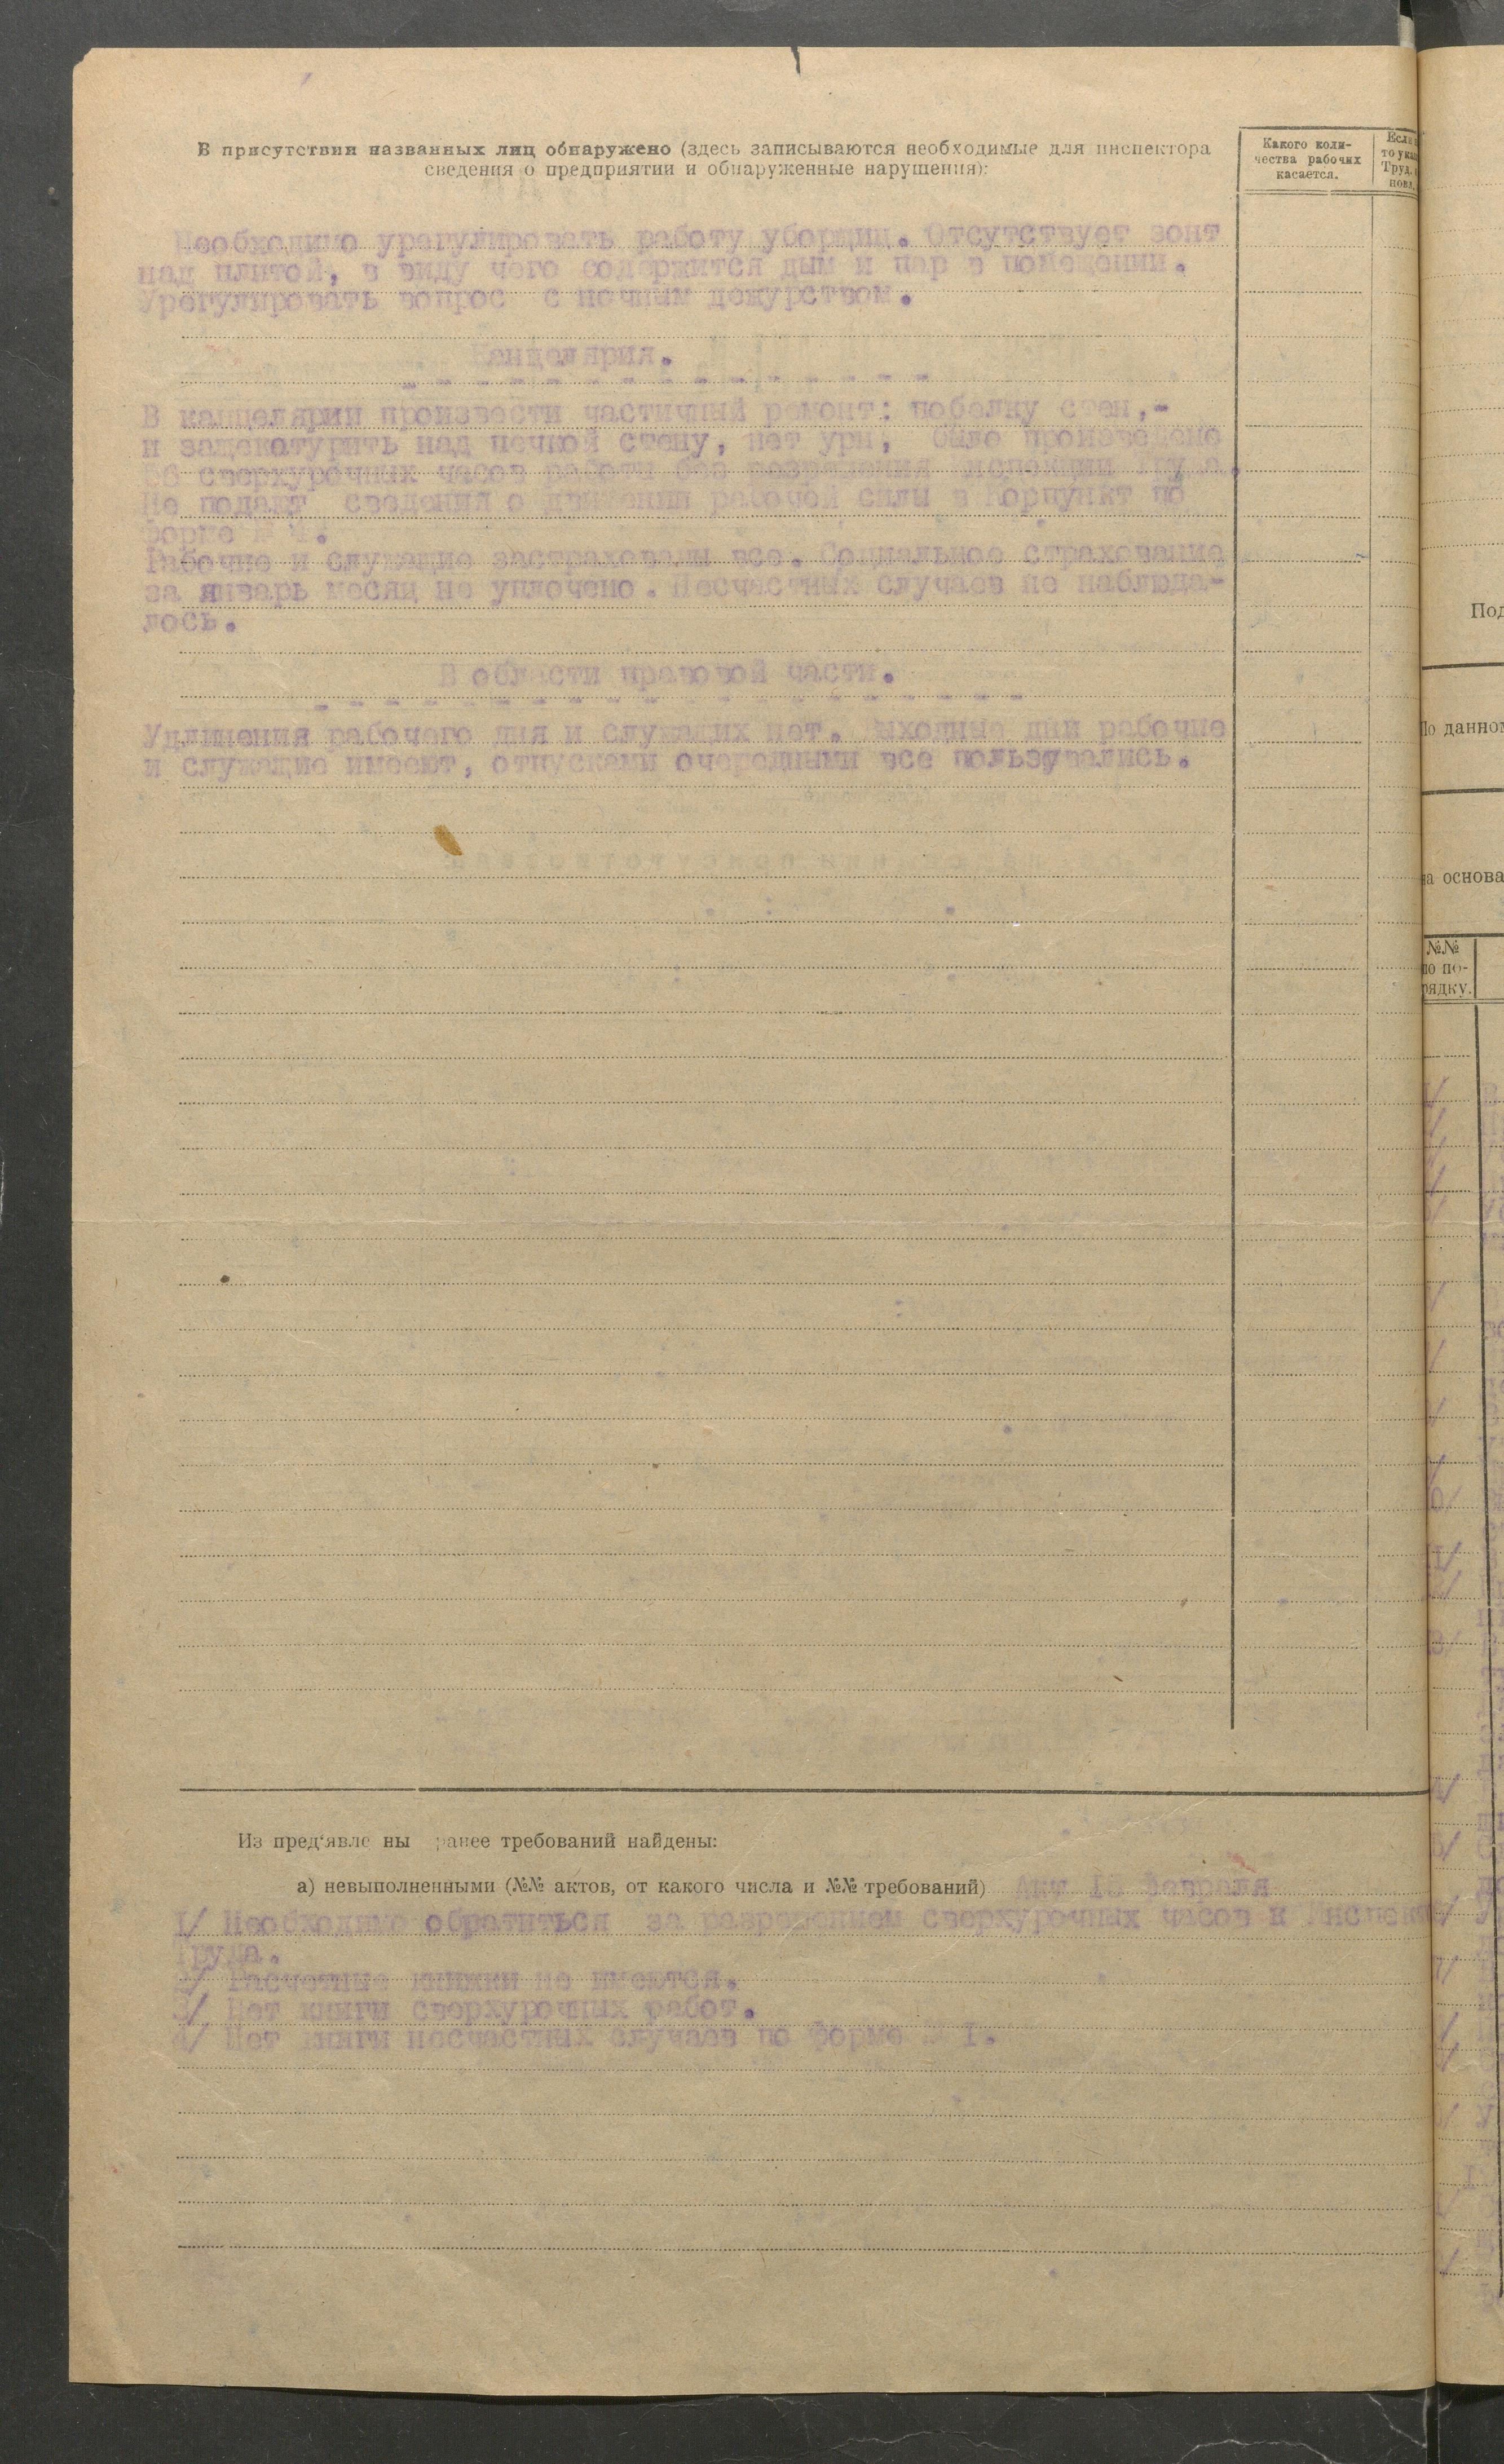 В присутствии названных лиц обнаружено (здесь записываются необходимые для инспектора
сведения о предприятии и обнаруженные нарушения):
Какого коли-
чества рабочих
касается.
Необходимо урегулировать работу уборщиц. Отсутствует зонт
над плитой, в виду чего содержится дым и пар в помещении.
Урегулировать вопрос с ночным дежурством.
Канцелярия.
В канцелярии произвести частичный ремонт: побелку стен,-
и защекатурить над печкой стену, нет урн, было произведено
сверхурочных часов работы без разрешения Инспекции Труда.
Не подают сведения о движении рабочей силы в Корпункт по
форме №
Рабочие и служащие застрахованы все. Социальное страхование
за январь месяц не уплочено. Несчастных случаев не наблюда-
лось.
В области правовой части.
Удлинения рабочего дня и служащих нет. Выходные дни рабочие
и служащие имеют, отпусками очередными все пользувались.
Из пред'явле ны ранее требований найдены:
а) невыполненными (№№ актов, от какого числа и №№ требований) Акт февраля
1/ Необходимо обратиться за разрешением сверхурочных часов к Инспек
Труда.
2/ Расчетные книжки не имеются.
3/ Нет книги сверхурочных работ.
4/ Нет книги несчастных случаев по форме № I.
Под
По данном
на основа
№№
по по-
рядку.